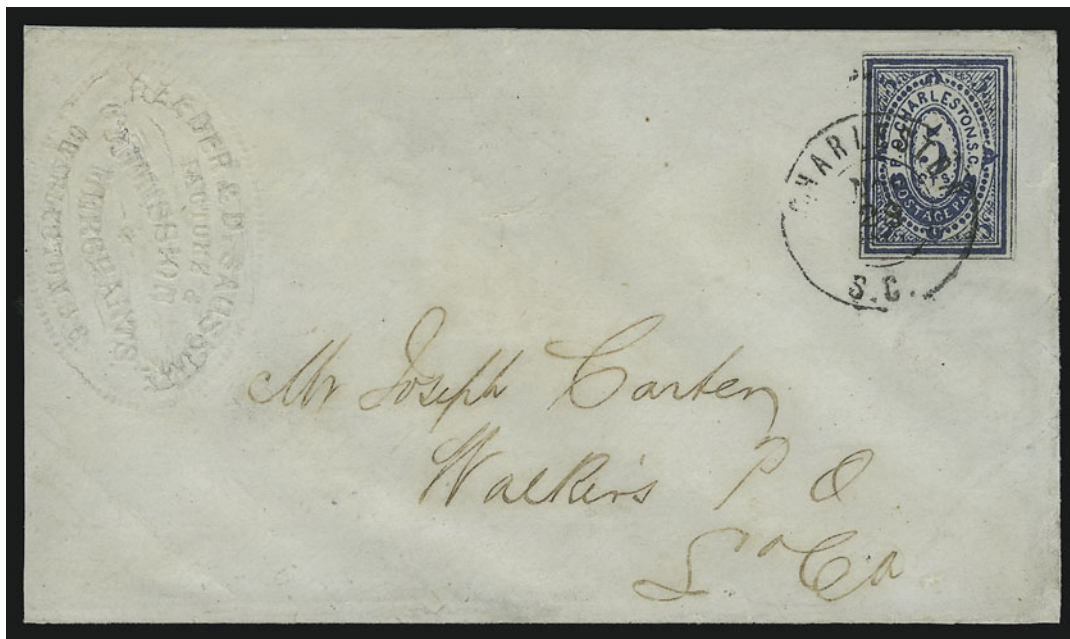 REEDER & DESAUSSURE
FACTORS &
COMMISSION
MERCHANTS
CHARLESTON S.C.
5 5
P.O. CHARLESTON, S.C.
5
CTS.
POSTAGE PAID
CHARLESTON
S.C.
Mr Joseph Carter
Walkers P O
So Ca